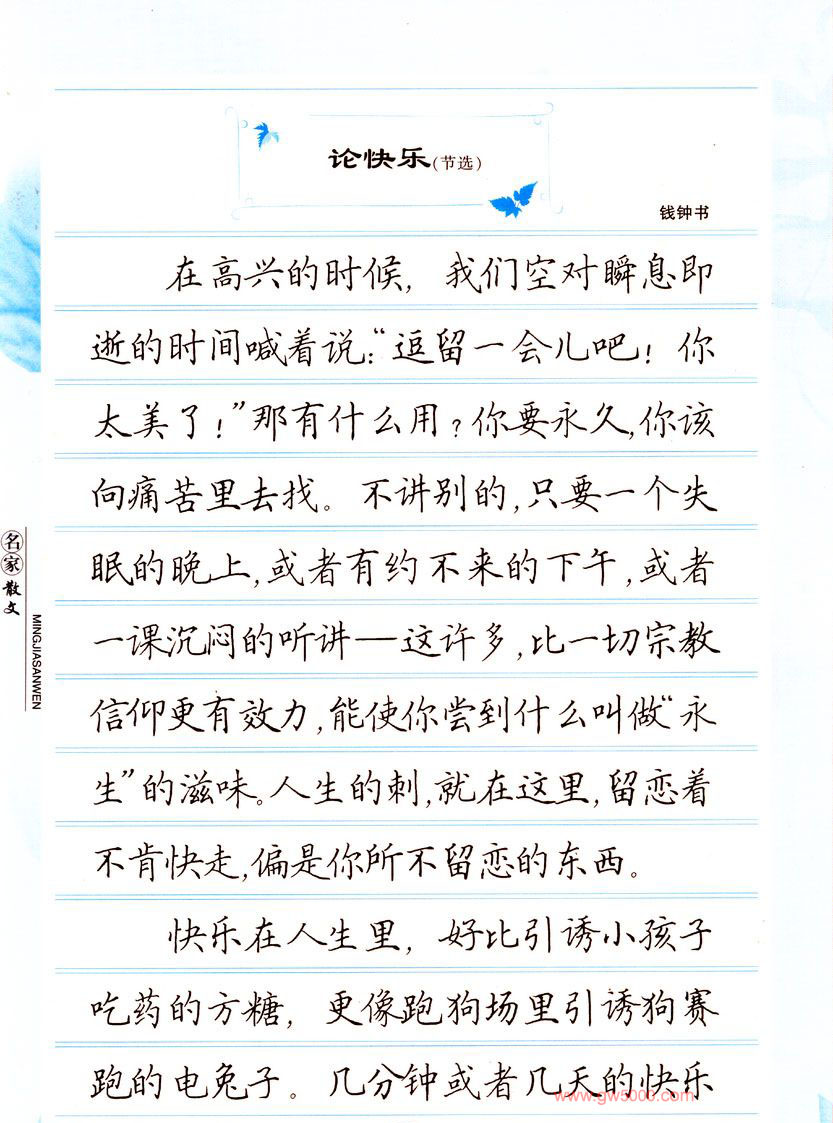 论快乐(节选)
钱钟书
在高兴的时候，我们空对瞬息即
逝的时间喊着说：“逗留一会儿吧！你
太美了！”那有什么用？你要永久，你该
向痛苦里去找。不讲别的，只要一个失
眠的晚上，或者有约不来的下午，或者
一课沉闷的听讲——这许多，比一切宗教
信仰更有效力，能使你尝到什么叫做“永
生”的滋味。人生的刺，就在这里，留恋着
不肯快走，偏是你所不留恋的东西。
快乐在人生里，好比引诱小孩子
吃药的方糖，更像跑狗场里引诱狗赛
跑的电兔子。几分钟或者几天的快乐
名家散文
MINGJIASANWEN
www.gw5000.com